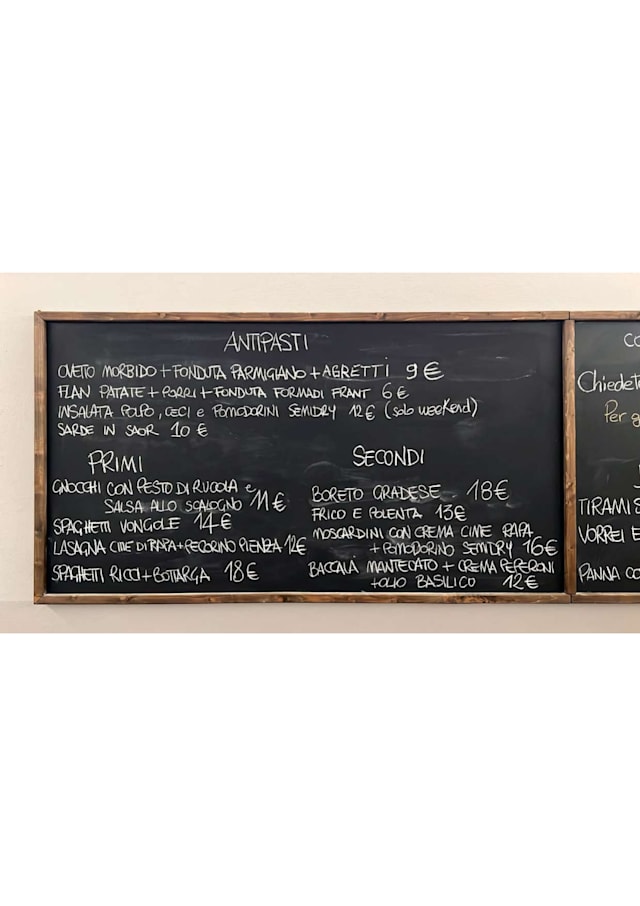 ANTIPASTI
OVETTO MORBIDO + FONDUTA PARMIGIANO + AGRETTI 9 €
FLAN PATATE + PORRI + FONDUTA FORMADI FRANT 6 €
INSALATA POLPO, CECI e POMODORINI SEMIDRY 12 € (solo weekend)
SARDE IN SAOR 10 €
PRIMI
GNOCCHI CON PESTO DI RUCOLA e
SALSA ALLO SCALOGNO 11 €
SPAGHETTI VONGOLE 14 €
LASAGNA CIME DI RAPA + PECORINO PIENZA 12€
SPAGHETTI RICCI + BOTTARGA 18 €
SECONDI
BORETO GRADESE 18 €
FRICO E POLENTA 13 €
MOSCARDINI CON CREMA CIME RAPA
+ POMODORINO SEMIDRY 16 €
BACCALÀ MANTECATO + CREMA PEPERONI
+ OLIO BASILICO 12 €
CO
Chiedete
Per g
TIRAMIS
VORREI E
PANNA CO